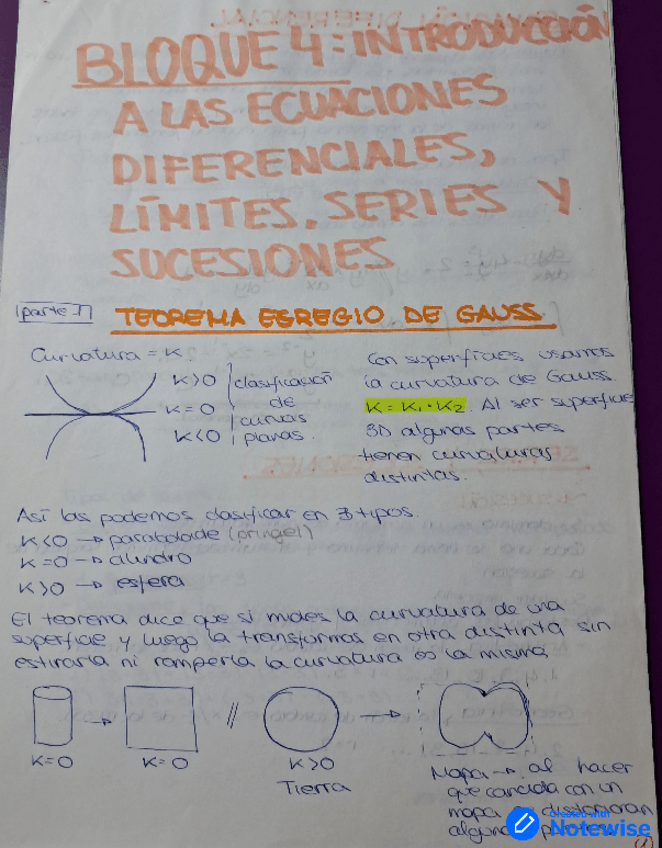 BLOQUE 4: INTRODUCCIÓN
A LAS ECUACIONES
DIFERENCIALES,
LÍMITES, SERIES Y
SUCESIONES
parte I
TEOREMA EGREGIO DE GAUSS
Curvatura = K
K>0
K=0
K<0
clasificación
de
curvas
planas.
Con superficies usamos
la curvatura de Gauss.
K = K₁·K₂. Al ser superficie
3D algunas partes
tienen curvaturas
distintas.
Así las podemos clasificar en 3 tipos.
K<0 → paraboloide (pringel)
K=0 → cilindro
K>0 → esfera
El teorema dice que si mides la curvatura de una
superficie y luego la transformas en otra distinta sin
estirarla ni romperla la curvatura es la misma
K=0
K=0
//
K>0
Tierra
Mapa → al hacer
que coincida con un
mapa distorsionan
Created with
Notewise